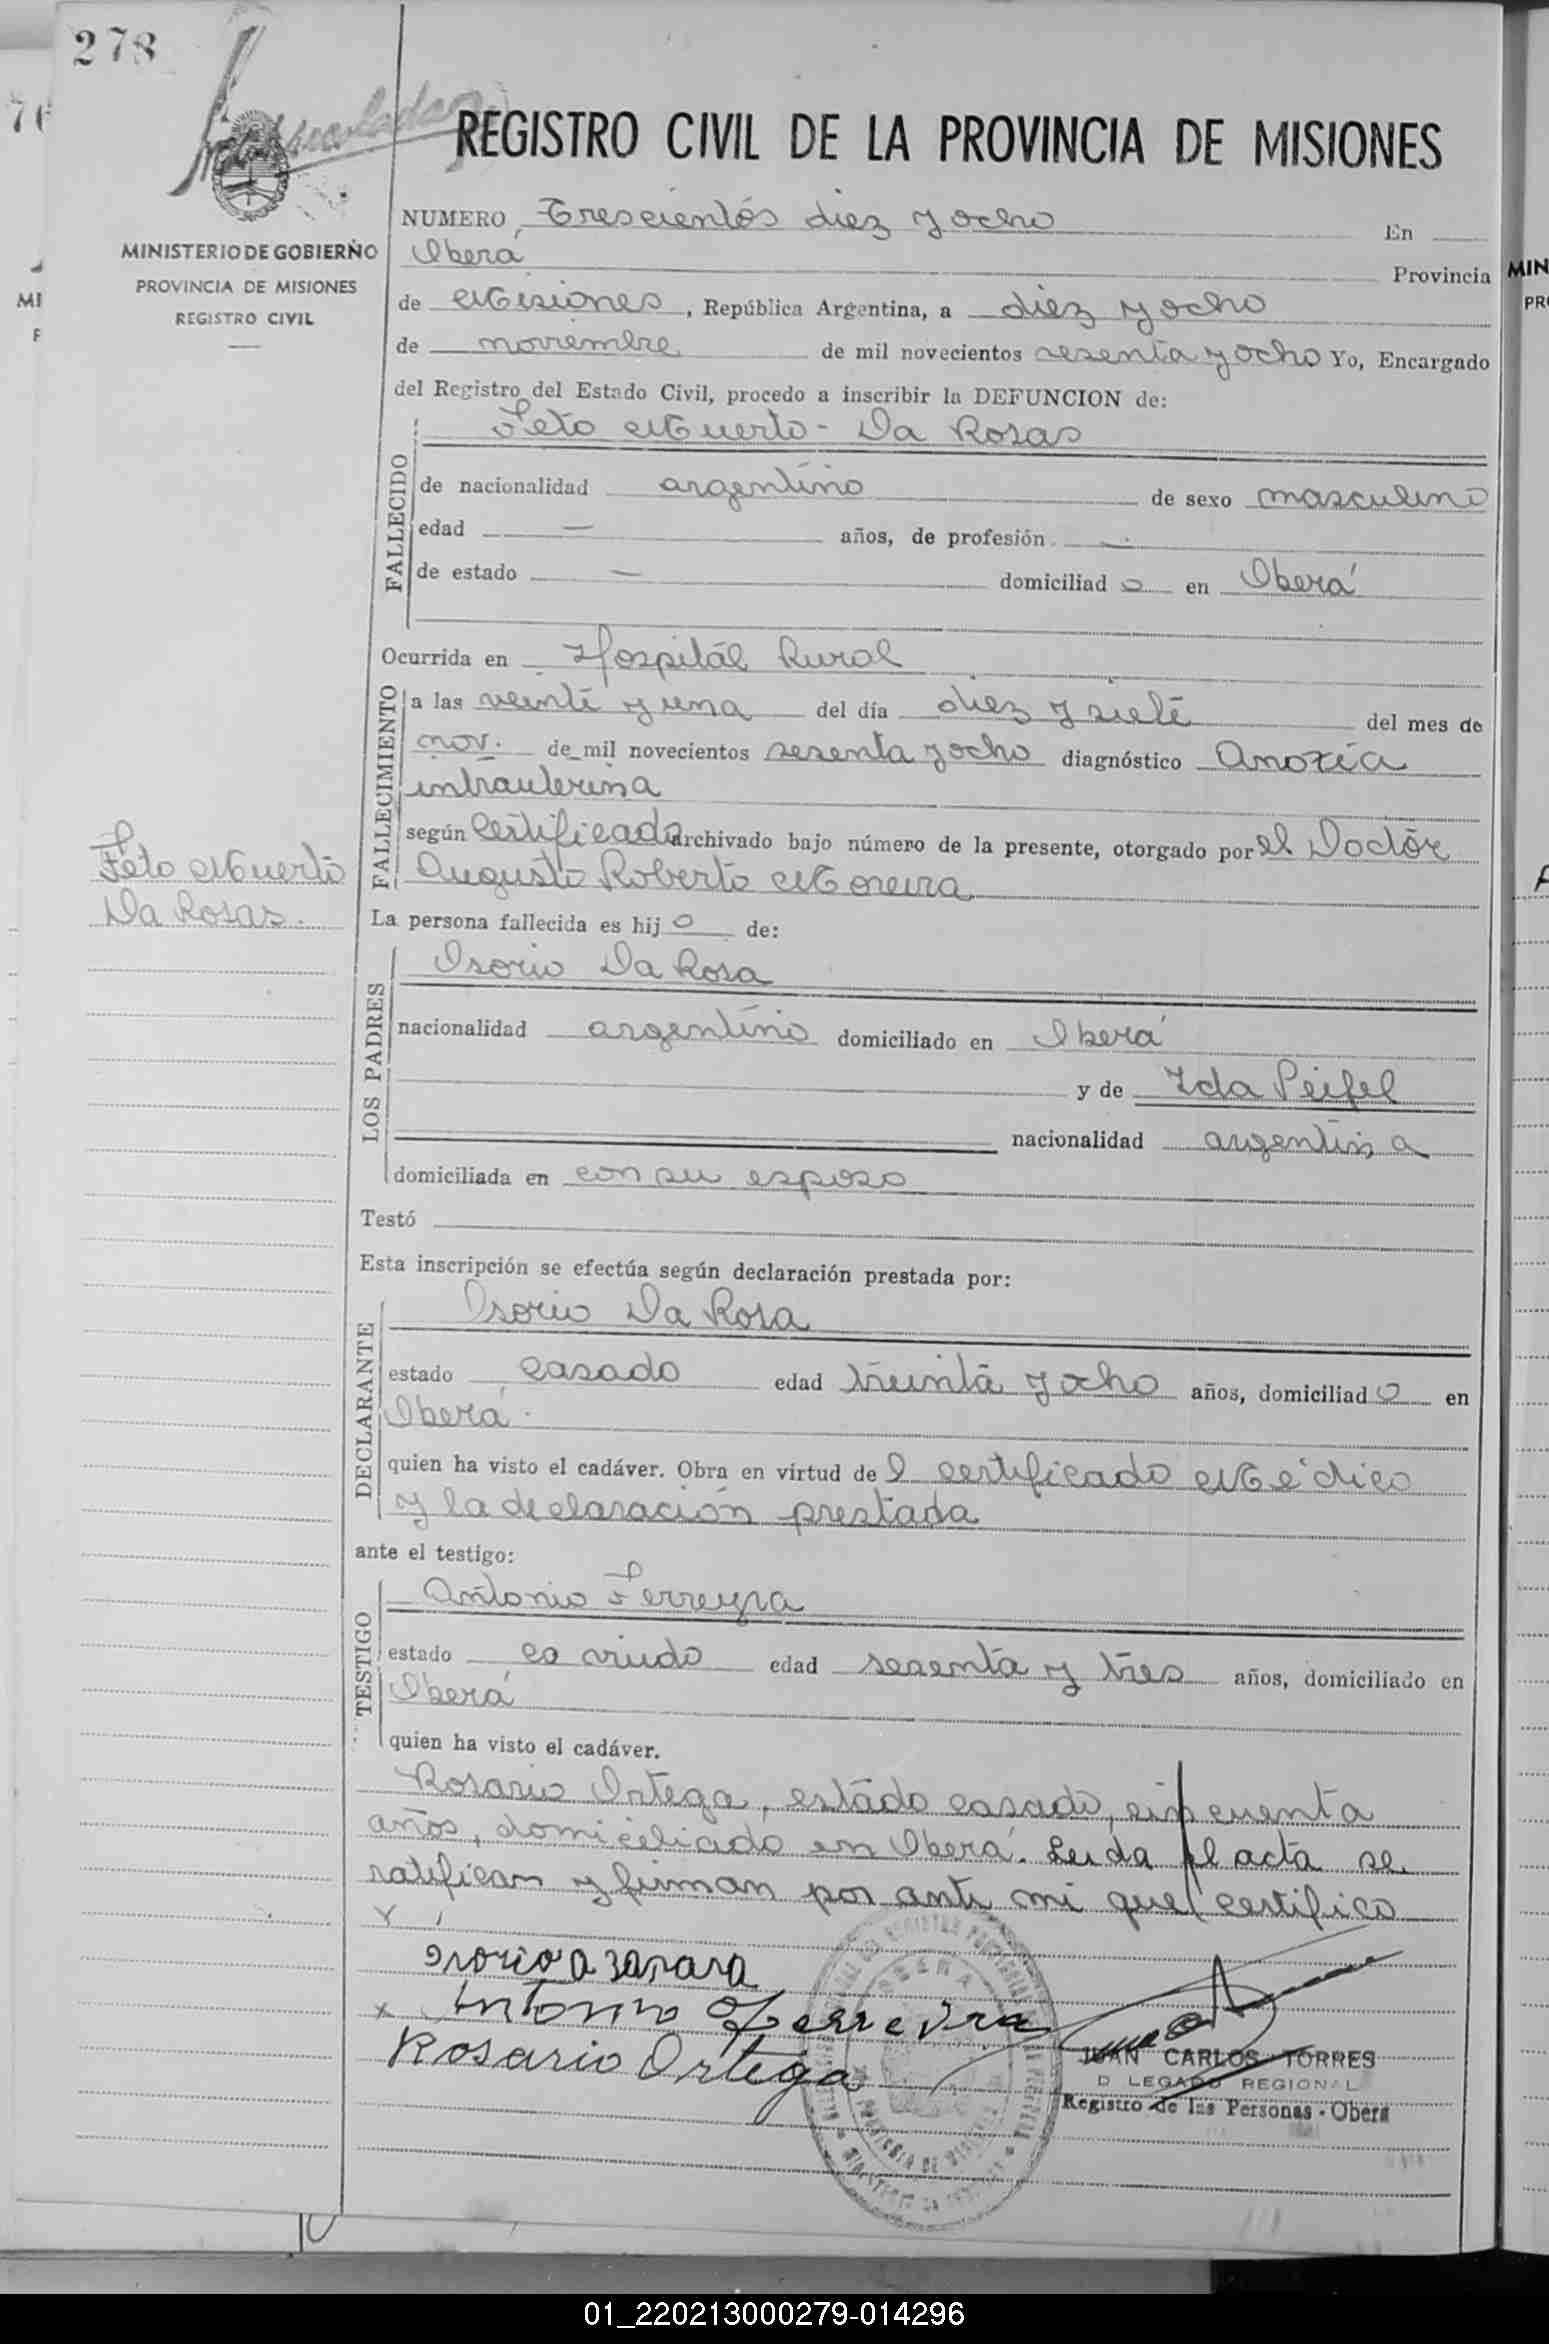 278
REGISTRO CIVIL DE LA PROVINCIA DE MISIONES
MINISTERIO DE GOBIERNO
PROVINCIA DE MISIONES
REGISTRO CIVIL
NUMERO Trescientos diez y ocho En
Oberá Provincia
de Misiones, República Argentina, a diez y ocho
de noviembre de mil novecientos sesenta y ocho Yo, Encargado
del Registro del Estado Civil, procedo a inscribir la DEFUNCION de:
Feto Muerto - Da Rosas
FALLECIDO
de nacionalidad argentino de sexo masculino
edad — años, de profesión —
de estado — domiciliad o en Oberá
Ocurrida en Hospital Rural
FALLECIMIENTO
a las veinte y una del día diez y siete del mes de
nov. de mil novecientos sesenta y ocho diagnóstico Anoxia
intrauterina
según Certificado archivado bajo número de la presente, otorgado por el Doctor
Augusto Roberto Moreira
Feto Muerto
Da Rosas.
La persona fallecida es hij o de:
LOS PADRES
Osorio Da Rosa
nacionalidad argentino domiciliado en Oberá
y de Ida Peifel
nacionalidad argentina
domiciliada en con su esposo
Testó
Esta inscripción se efectúa según declaración prestada por:
DECLARANTE
Osorio Da Rosa
estado casado edad treinta y ocho años, domiciliad o en
Oberá.
quien ha visto el cadáver. Obra en virtud de l certificado Médico
y la declaración prestada
ante el testigo:
TESTIGO
Antonio Ferreyra
estado ca viudo edad sesenta y tres años, domiciliado en
Oberá
quien ha visto el cadáver.
Rosario Ortega, estado casado, cincuenta
años, domiciliado en Oberá. Leida el acta se
ratifican y firman por ante mi que certifico
Antonio Ferreyra
Rosario Ortega
JUAN CARLOS TORRES
D LEGADO REGIONAL
Registro de las Personas - Oberá
01_220213000279-014296